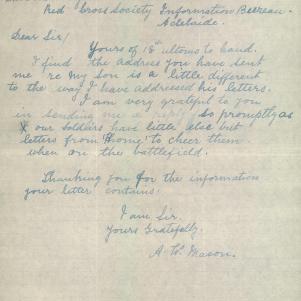 Red Cross Society Information Beureau.
Adelaide.
Dear Sir/
Yours of 18th ultomo to hand.
I find the address you have sent
me 're my son is a little different
to the way I have addressed his letters.
I am very grateful to you
in sending me a reply so promptly as
our soldiers have little else but
letters from 'home' to cheer them
when on the battlefield.
Thanking you for the information
your letter contains.
I am Sir.
Yours Gratefully.
A. W. Mason.